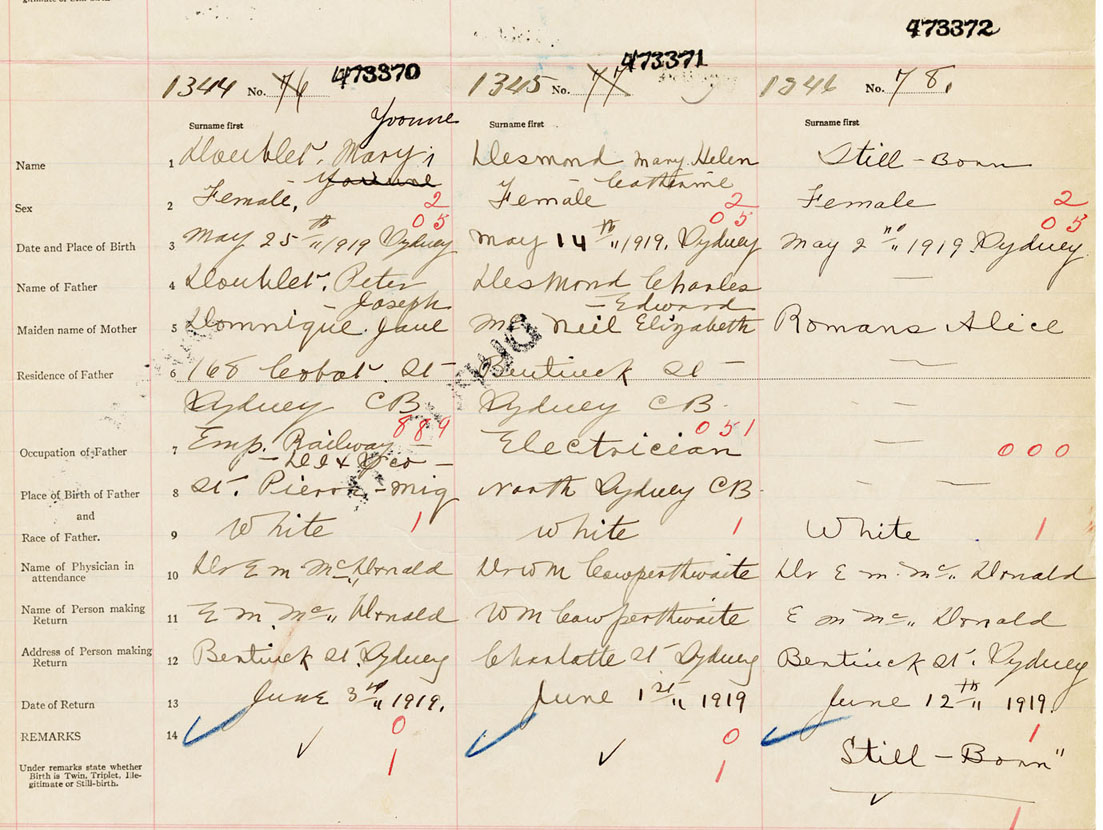 473370
473371
473372
1344 No. 76
1345 No. 77
No. 78.
Surname first
Surname first
Surname first
Yvonne
Name
1 Doublet. Mary
Yvonne
Desmond Mary Helen
Catherine
Still-Born
Sex
2 Female.
2
Female
2
Female
2
05
05
05
Date and Place of Birth
3 May 25th "/1919 Sydney
May 14th "/1919. Sydney
May 2nd " 1919. Sydney
Name of Father
4 Doublet. Peter
Joseph
Desmond Charles
- Edward
—
Maiden name of Mother
5 Domnique. Jane
Mc Neil Elizabeth
Romans Alice
Residence of Father
6 168 Cobot. St
Bentinck St
—
Sydney CB
Sydney CB.
- —
Occupation of Father
7 Emp. Railway
889
- DI & S Co -
Electrician
051
—
000
Place of Birth of Father
and
Race of Father.
8 St. Pierre - Miq
North Sydney CB.
- —
9 White 1
White 1
White 1
Name of Physician in
attendance
10 Dr E M Mc Donald
Dr W M Cowperthwaite
Dr E. M. Mc " Donald
Name of Person making
Return
11 E M. Mc " Donald
W M Cowperthwaite
E M Mc " Donald
Address of Person making
Return
12 Bentinck St. Sydney
Charlotte St Sydney
Bentinck St. Sydney
Date of Return
13 June 3rd " 1919.
June 1st " 1919
June 12th " 1919.
REMARKS
14
0
0
1
Still-Born"
Under remarks state whether
Birth is Twin, Triplet, Ille-
gitimate or Still-birth.
1
1
1